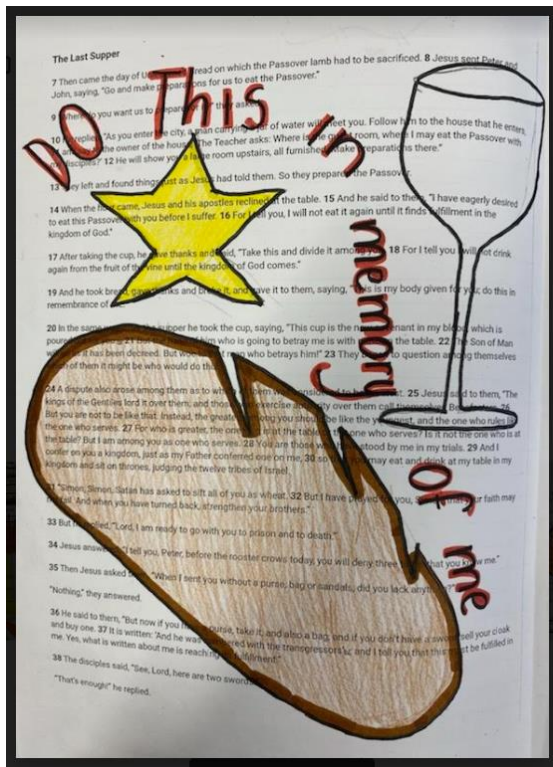 The Last Supper
7 Then came the day of read on which the Passover lamb had to be sacrificed. 8 Jesus sent Peter and
John, saying, "Go and make preparations for us to eat the Passover."
9 do you want us to prepare they asked.
10 replied, "As you enter the city, a man carrying jar of water will meet you. Follow him to the house that he enters,
the owner of the house The Teacher asks: Where is the room, where I may eat the Passover with
disciples?' 12 He will show you a large room upstairs, all furnished. Make preparations there."
13 They left and found things just as Jesus had told them. So they prepared the Passover.
14 When the came, Jesus and his apostles reclined at the table. 15 And he said to them, "I have eagerly desired
to eat this Passover with you before I suffer. 16 For I tell you, I will not eat it again until it finds fulfillment in the
kingdom of God."
17 After taking the cup, he gave thanks and said, "Take this and divide it among you. 18 For I tell you I will not drink
again from the fruit of the vine until the kingdom of God comes."
19 And he took bread, gave thanks and broke it, and gave it to them, saying, "This is my body given for you; do this in
remembrance of
20 In the same supper he took the cup, saying, "This cup is the covenant in my blood, which is
him who is going to betray me is with the table. 22 The Son of Man
it has been decreed. But woe man who betrays him!" 23 They to question among themselves
of them it might be who would do this
24 A dispute also arose among them as to which of them 25 Jesus said to them, "The
kings of the Gentiles lord it over them; and those exercise authority over them call themselves
But you are not to be like that. Instead, the greatest among you should be like the youngest, and the one who rules
the one who serves. 27 For who is greater, the one is at the table the one who serves? Is it not the one who is at
the table? But I am among you as one who serves. 28 You are those stood by me in my trials. 29 And I
confer on you a kingdom, just as my Father conferred one on me, 30 so may eat and drink at my table in my
kingdom and sit on thrones, judging the twelve tribes of Israel.
"Simon, Simon, Satan has asked to sift all of you as wheat. 32 But I have prayed for you, faith may
fail. And when you have turned back, strengthen your brothers."
33 But replied, "Lord, I am ready to go with you to prison and to death."
34 Jesus answered, "I tell you, Peter, before the rooster crows today, you will deny three that you know me."
35 Then Jesus asked "When I sent you without a purse, bag or sandals, did you lack
"Nothing," they answered.
36 He said to them, "But now if you purse, take it, and also a bag; and if you don't have a sword, sell your cloak
and buy one. 37 It is written: 'And he was numbered with the transgressors'; and I tell you that this must be fulfilled in
me. Yes, what is written about me is reaching fulfillment."
38 The disciples said, "See, Lord, here are two swords
"That's enough!" he replied.
DO This in
memory
of me